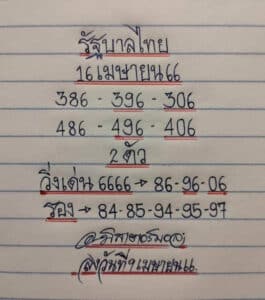 รัฐบาลไทย
16 เมษายน 66
386 - 396 - 306
486 - 496 - 406
2 ตัว
วิ่งเด่น 6666 → 86-96-06
รอง → 84-85-94-95-97
วันที่ 9 เมษายน 66